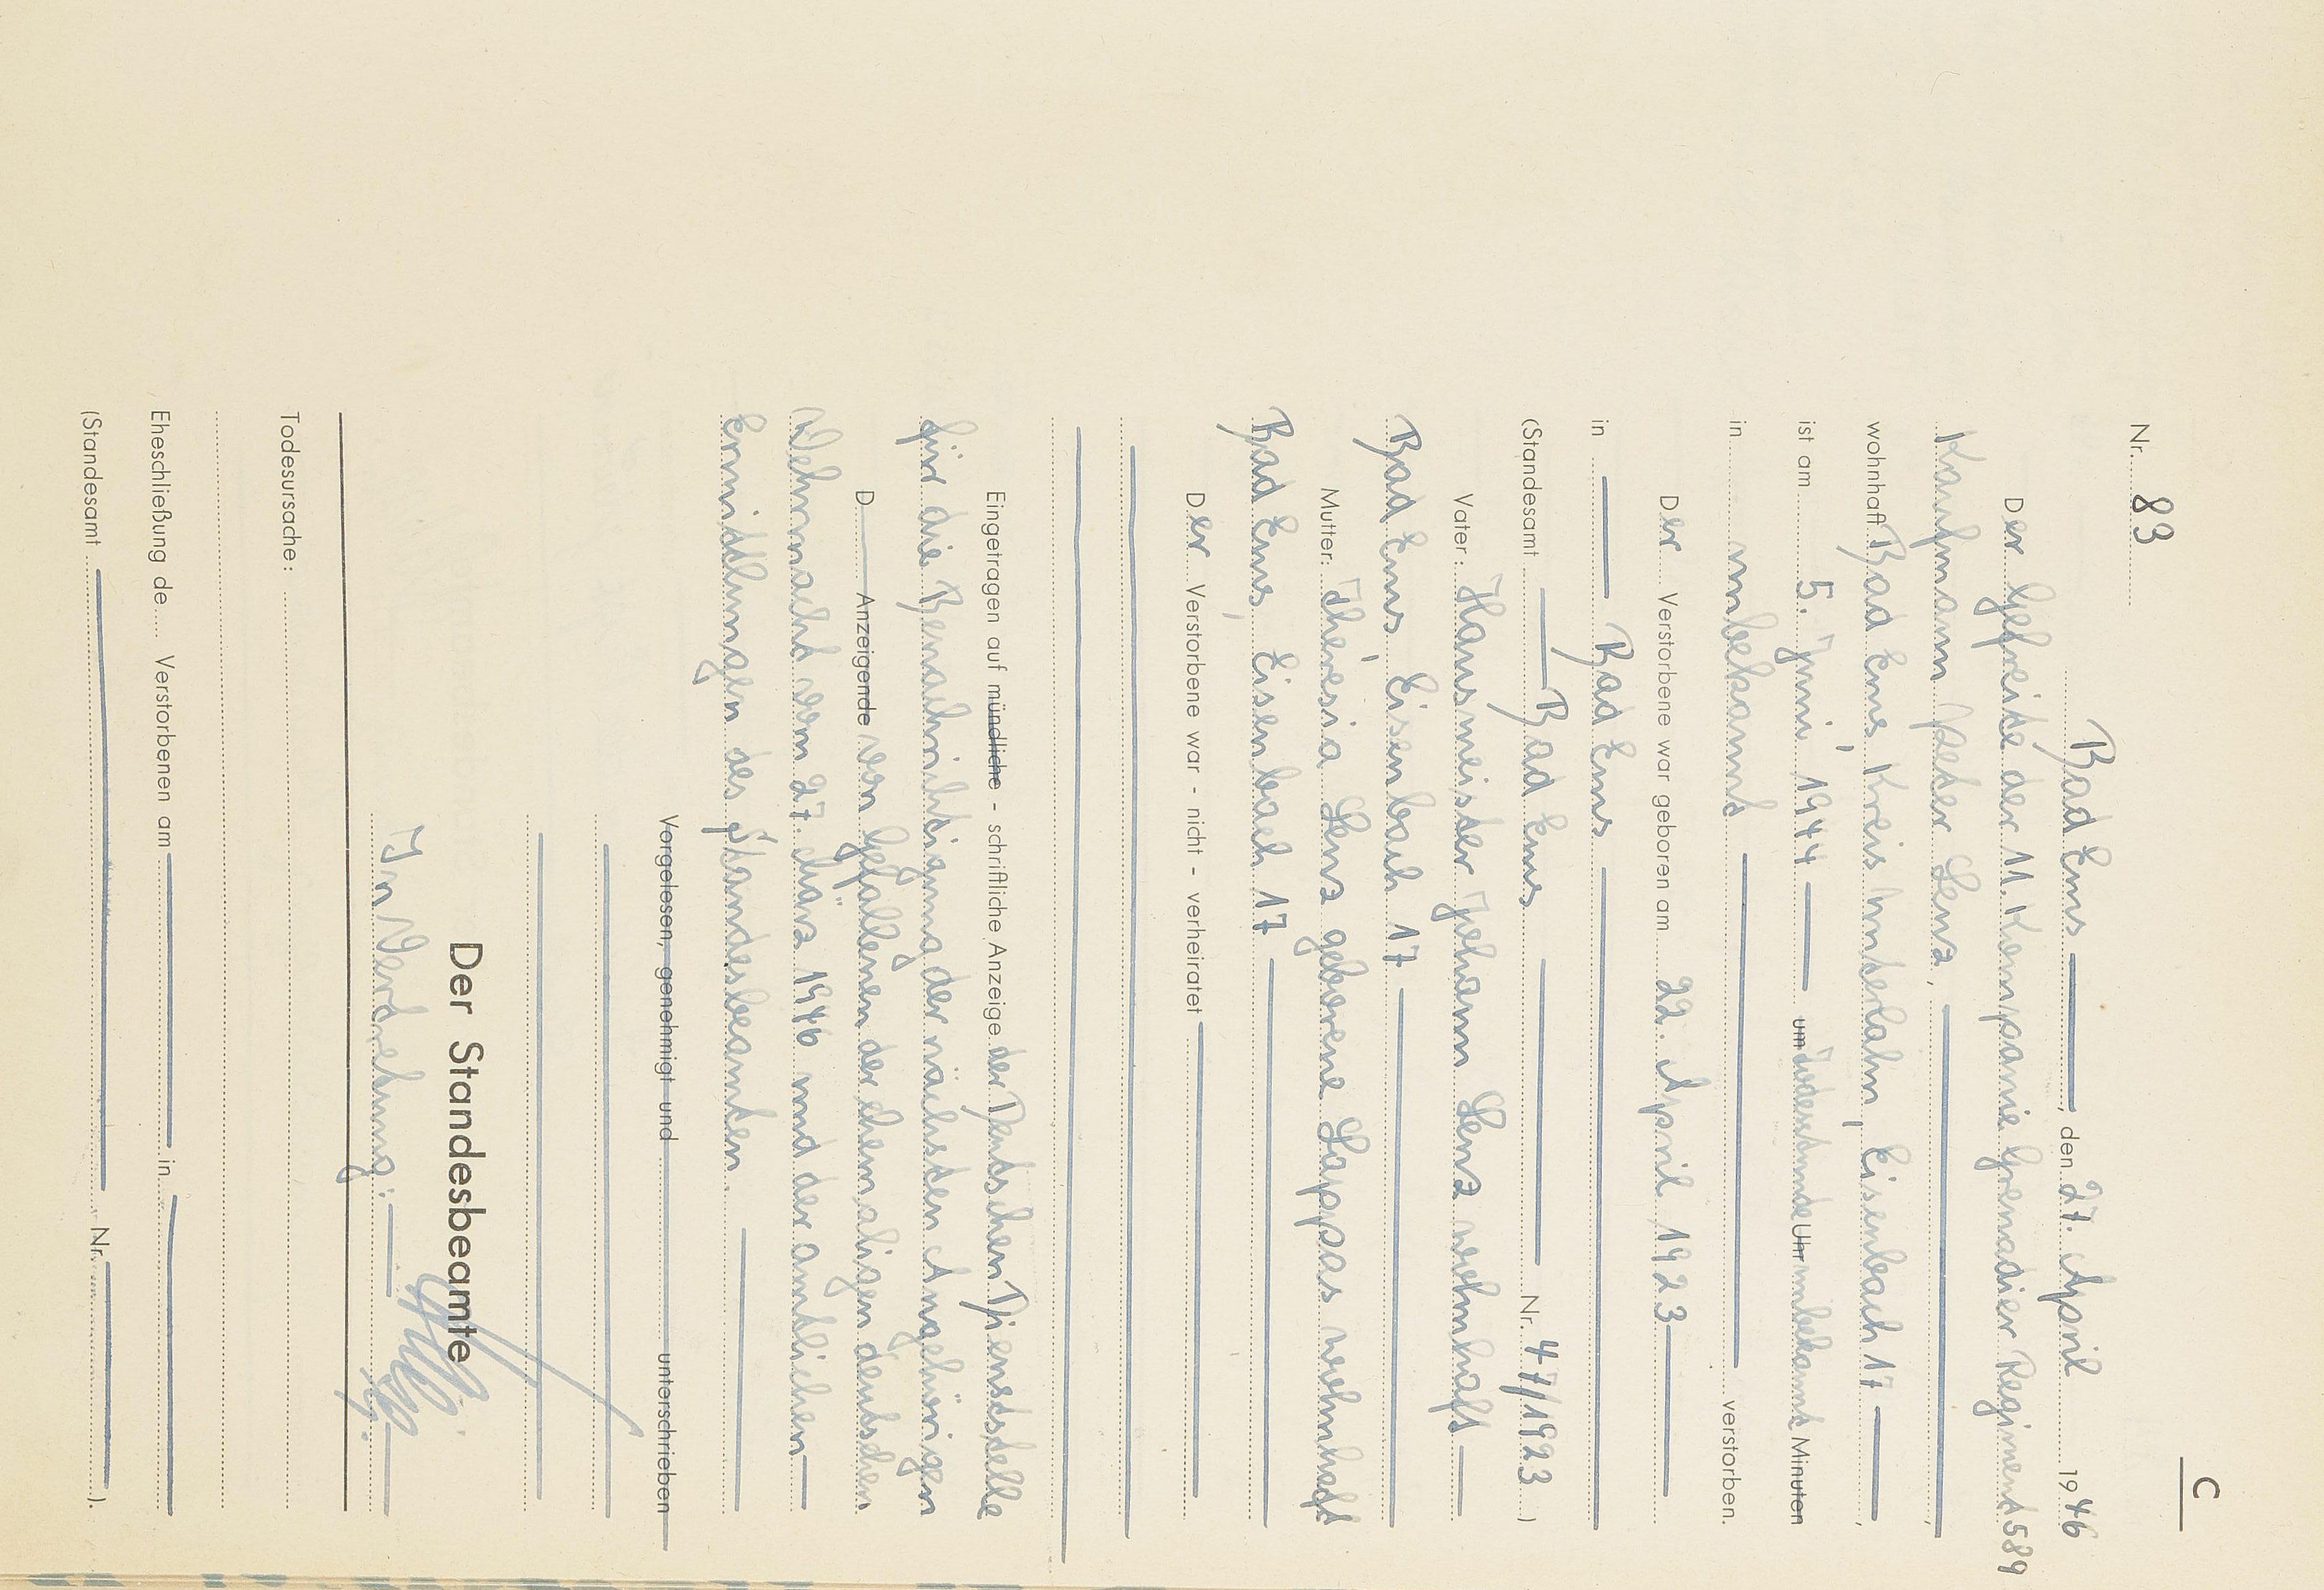 C
Nr. 83
Bad Ems, den 27. April 1946
Der Gefreite der 11. Kompanie Grenadier Regiment 589
Kaufmann Peter Lenz,
wohnhaft Bad Ems, Kreis Unterlahn, Eisenbach 17,
ist am 5. Juni 1944 um Todesstunde Uhr unbekannt Minuten
in unbekannt verstorben.
Der Verstorbene war geboren am 22. April 1923
in Bad Ems
(Standesamt Bad Ems Nr. 47/1923)
Vater: Hausmeister Johann Lenz wohnhaft
Bad Ems, Eisenbach 17
Mutter: Theresia Lenz geborene Lappas wohnhaft
Bad Ems, Eisenbach 17
Der Verstorbene war - nicht - verheiratet
Eingetragen auf mündliche - schriftliche Anzeige der Deutschen Dienststelle
für die Benachrichtigung der nächsten Angehörigen
D Anzeigende von Gefallenen der ehemaligen deutschen
Wehrmacht vom 27. März 1946 und der amtlichen
Ermittlungen des Standesbeamten.
Vorgelesen, genehmigt und unterschrieben
Der Standesbeamte
In Vertretung:
Todesursache:
Eheschließung de Verstorbenen am in
(Standesamt Nr. ).